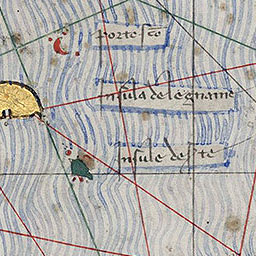 porto sco
Insula de legname
Insule desrte